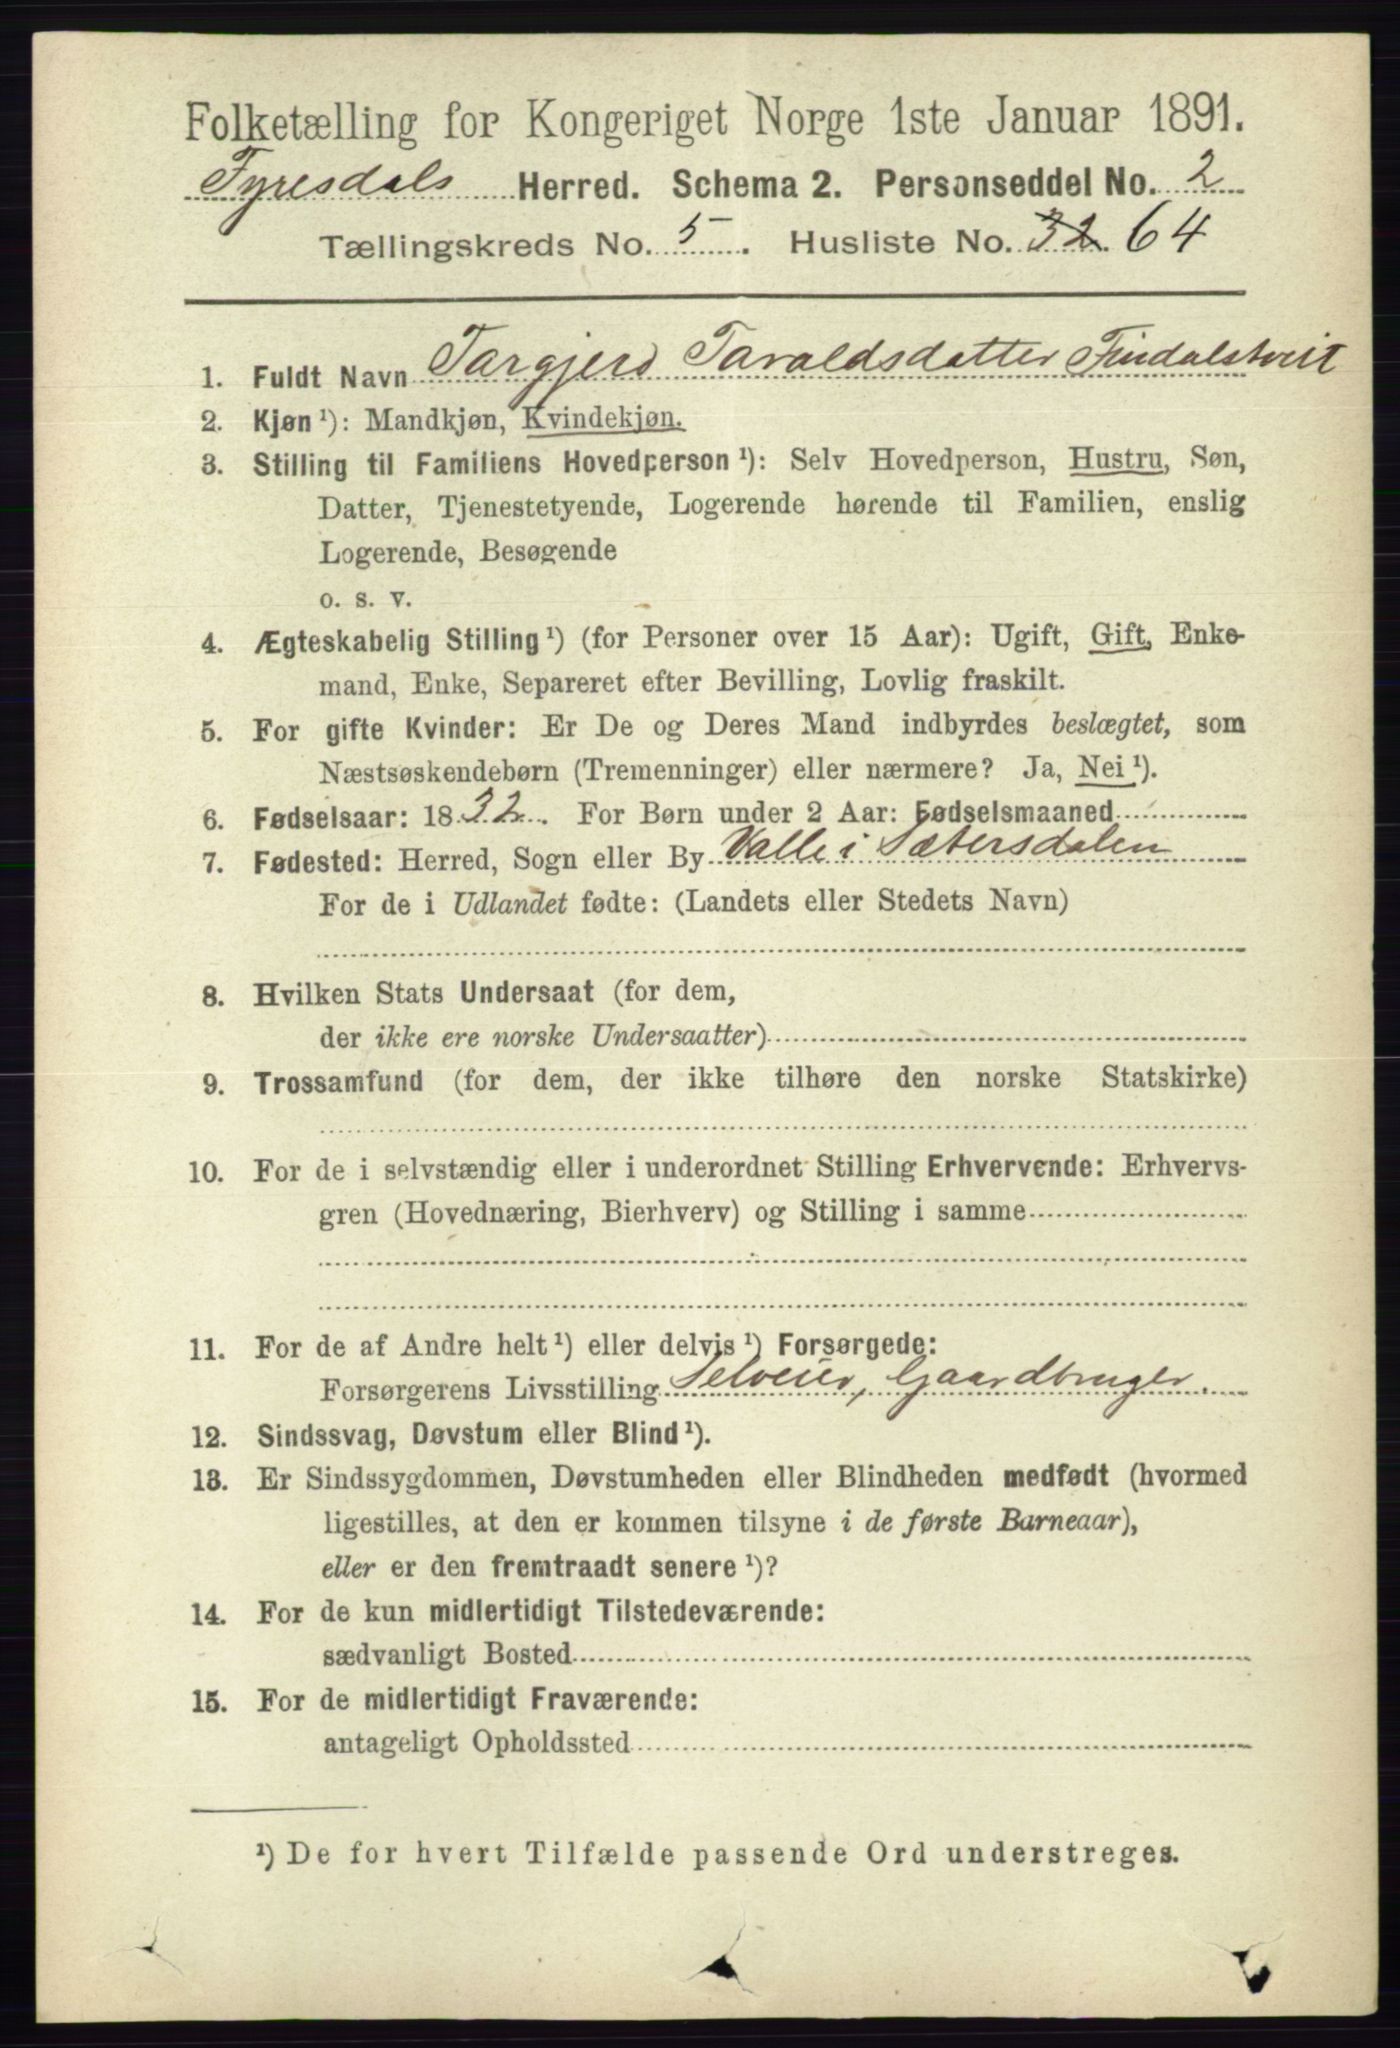 Folketælling for Kongeriget Norge 1ste Januar 1891.
Fyresdals Herred. Schema 2. Personseddel No. 2
Tællingskreds No. 5. Husliste No. 32. 64
1. Fuldt Navn Targjerd Taraldsdatter Findalstveit
2. Kjøn ¹): Mandkjøn, Kvindekjøn.
3. Stilling til Familiens Hovedperson ¹): Selv Hovedperson, Hustru, Søn,
Datter, Tjenestetyende, Logerende hørende til Familien, enslig
Logerende, Besøgende
o. s. v.
4. Ægteskabelig Stilling ¹) (for Personer over 15 Aar): Ugift, Gift, Enke-
mand, Enke, Separeret efter Bevilling, Lovlig fraskilt.
5. For gifte Kvinder: Er De og Deres Mand indbyrdes beslægtet, som
Næstsøskendebørn (Tremenninger) eller nærmere? Ja, Nei ¹).
6. Fødselsaar: 1832. For Børn under 2 Aar: Fødselsmaaned
7. Fødested: Herred, Sogn eller By Valle i Sætersdalen
For de i Udlandet fødte: (Landets eller Stedets Navn)
8. Hvilken Stats Undersaat (for dem,
der ikke ere norske Undersaatter)
9. Trossamfund (for dem, der ikke tilhøre den norske Statskirke)
10. For de i selvstændig eller i underordnet Stilling Erhvervende: Erhvervs-
gren (Hovednæring, Bierhverv) og Stilling i samme
11. For de af Andre helt ¹) eller delvis ¹) Forsørgede:
Forsørgerens Livsstilling Selveier, Gaardbruger.
12. Sindssvag, Døvstum eller Blind ¹).
13. Er Sindssygdommen, Døvstumheden eller Blindheden medfødt (hvormed
ligestilles, at den er kommen tilsyne i de første Barneaar),
eller er den fremtraadt senere ¹)?
14. For de kun midlertidigt Tilstedeværende:
sædvanligt Bosted
15. For de midlertidigt Fraværende:
antageligt Opholdssted
¹) De for hvert Tilfælde passende Ord understreges.